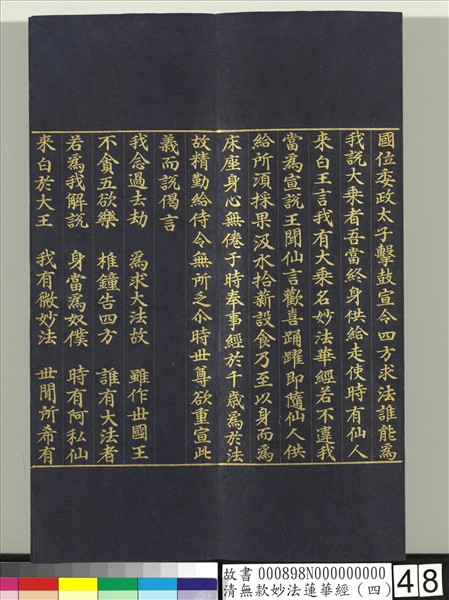 國位委政太子擊鼓宣令四方求法誰能為
我說大乗者吾當終身供給走使時有仙人
來白王言我有大乗名妙法華經若不違我
當為宣說王聞仙言歡喜踊躍即隨仙人供
給所須採果汲水拾薪設食乃至以身而為
床座身心無倦于時奉事經於千歲為於法
故精勤給侍令無所乏尒時世尊欲重宣此
義而說偈言
我念過去劫 為求大法故 雖作世國王
不貪五欲樂 椎鐘告四方 誰有大法者
若為我解說 身當為奴僕 時有阿私仙
來白於大王 我有微妙法 世間所希有
故書 000898N000000000
清無款妙法蓮華經(四)
48